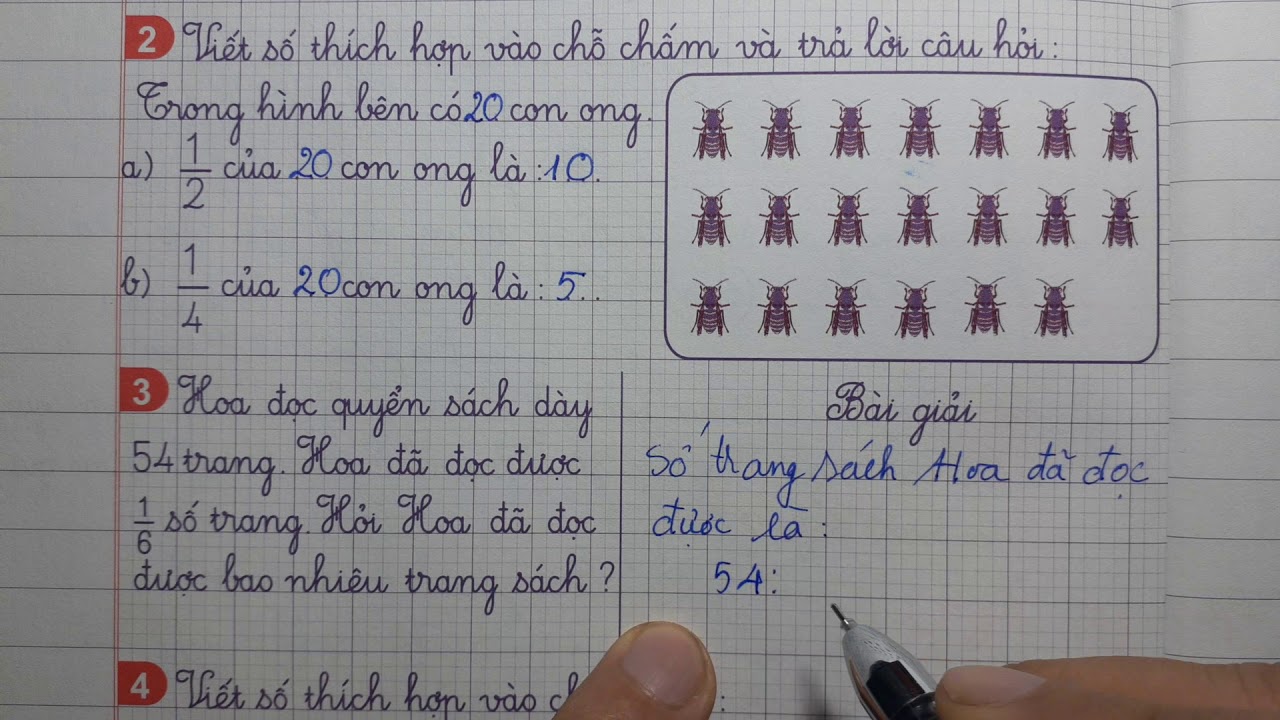 2 Viết số thích hợp vào chỗ chấm và trả lời câu hỏi:
Trong hình bên có 20 con ong.
a) 1/2 của 20 con ong là: 10.
b) 1/4 của 20 con ong là: 5..
3 Hoa đọc quyển sách dày
54 trang. Hoa đã đọc được
1/6 số trang. Hỏi Hoa đã đọc
được bao nhiêu trang sách?
Bài giải
Số trang sách Hoa đã đọc
được là:
54:
4 Viết số thích hợp vào :